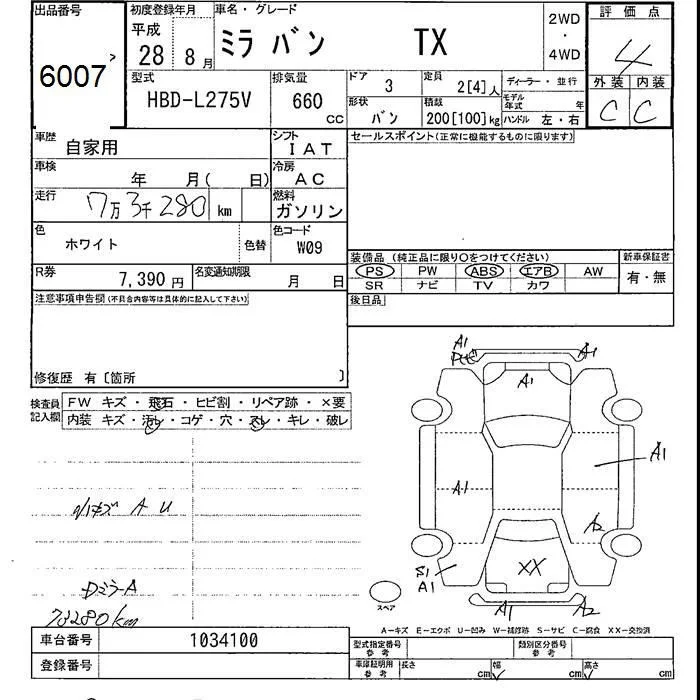 出品番号
6007
初度登録年月
平成
28 8月
車名・グレード
ミラ バン TX
2WD
・
4WD
評価点
4
外装 内装
C C
型式
HBD-L275V
排気量
660
cc
ドア 3
形状 バン
定員 2[4]人
積載 200[100]kg
ディーラー・並行
モデル年式 年
ハンドル 左・右
車歴
自家用
シフト
IAT
車検
年 月( 日)
冷房
AC
走行
7万3千280 km
燃料
ガソリン
色
ホワイト
色替
色コード
W09
R券
7,390円
名変通知期限
月 日
セールスポイント(正常に機能するものに限ります)
装備品 (純正品に限り○をつけてください)
PS PW ABS エアB AW
SR ナビ TV カワ
新車保証書
有・無
後日品
注意事項申告欄(不具合内容等は具体的に記入して下さい)
修復歴 有〔箇所 〕
検査員
記入欄
FW キズ・飛石・ヒビ割・リペア跡・×要
内装 キズ・汚レ・コゲ・穴・スレ・キレ・破レ
A U
DミラーA
73280km
A1
A1
A1
A1
A1
A2
S1
A1
XX
A1
A2
スペア
A-キズ E-エクボ U-凹み W-補修跡 S-サビ C-腐食 XX-交換済
車台番号
1034100
登録番号
型式指定番号
参考
類別区分番号
参考
車庫証明用
参考
長さ cm 幅 cm 高さ cm